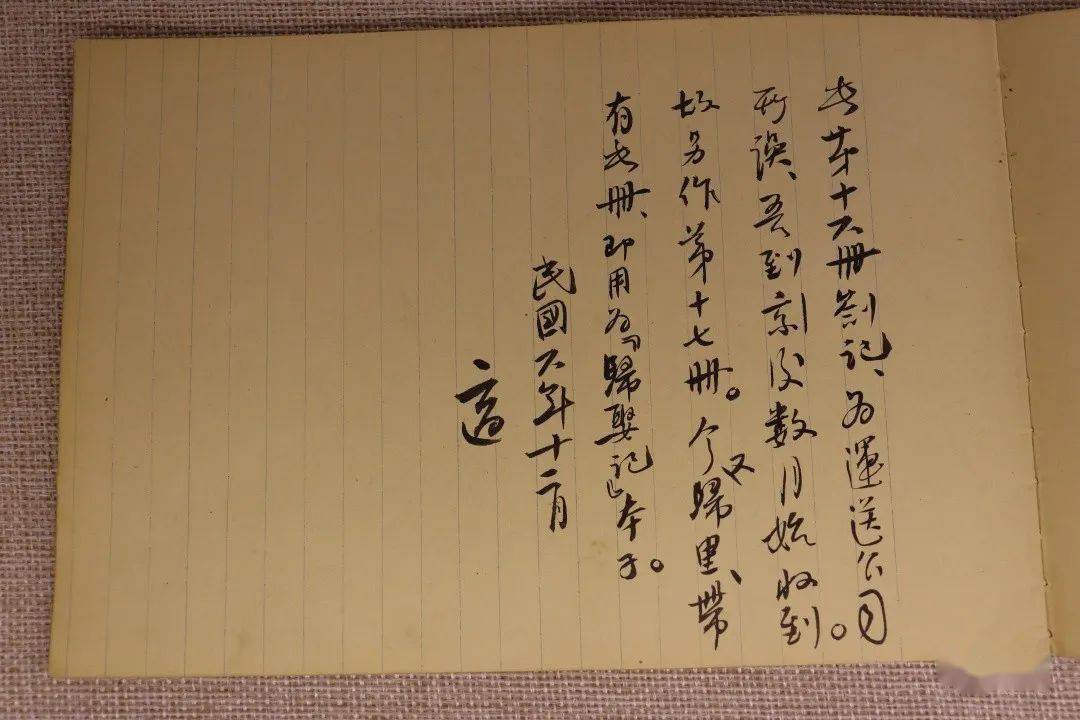 此第十六冊劄記、為運送公司
所誤、吾到京後數月始收到。
故另作第十七冊。今又歸里、帶
有此冊、即用為「歸娶記」本子。
民國六年十二月
適